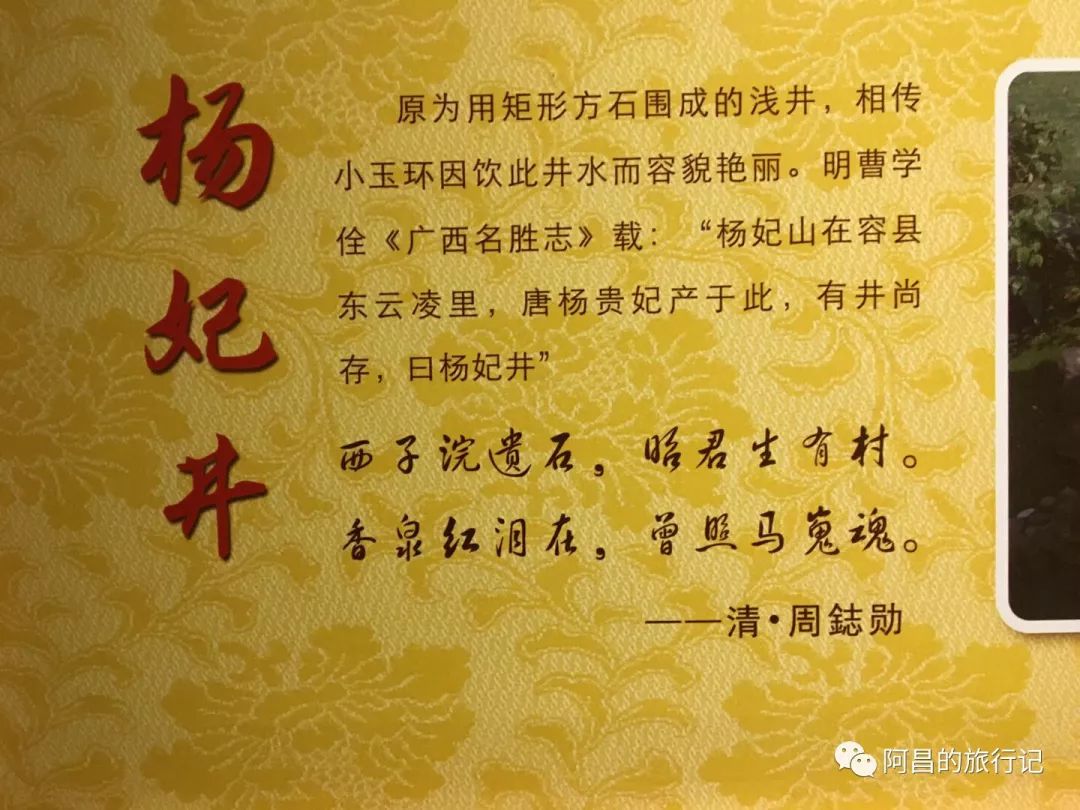 杨妃井
原为用矩形方石围成的浅井，相传
小玉环因饮此井水而容貌艳丽。明曹学
佺《广西名胜志》载：“杨妃山在容县
东云凌里，唐杨贵妃产于此，有井尚
存，曰杨妃井”
西子浣遗石，昭君生有村。
香泉红泪在，曾照马嵬魂。
——清•周鋕勋
阿昌的旅行记